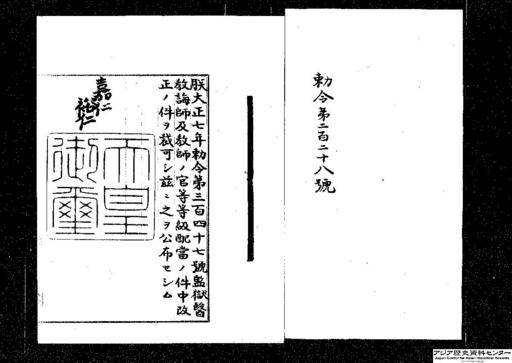 勅令第二百二十八號
朕大正七年勅令第三百四十七號監獄醫
教誨師及教師ノ官等等級配當ノ件中改
正ノ件ヲ裁可シ茲ニ之ヲ公布セシム
嘉仁
裕仁
天皇
御璽
アジア歴史資料センター
Japan Center for Asian Historical Records